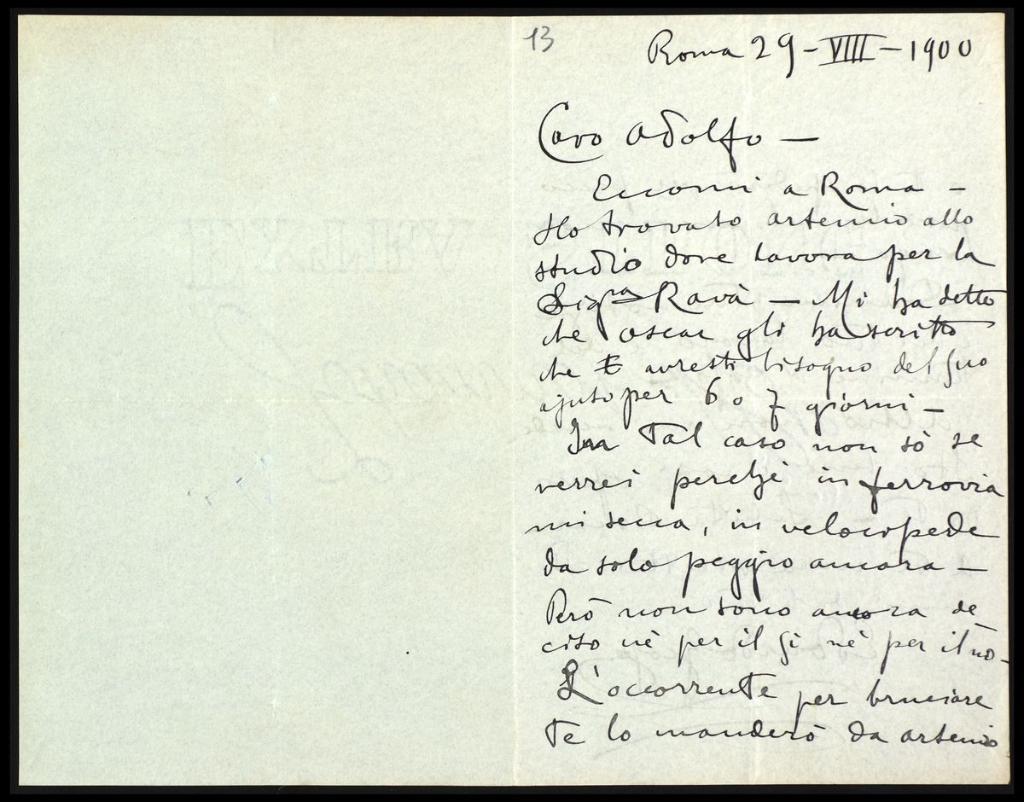 13
Roma 29-VIII-1900
Caro Adolfo —
Eccomi a Roma —
Ho trovato Artemio allo
studio dove lavora per la
Sig.ra Ravà — Mi ha detto
che Oscar gli ha scritto
che avresti bisogno del suo
ajuto per 6 o 7 giorni —
In tal caso non sò se
verrei perchè in ferrovia
mi secca, in velocipede
da solo peggio ancora —
Però non sono ancora de
ciso nè per il sì nè per il no —
L'occorrente per bruciare
te lo manderò da Artemio